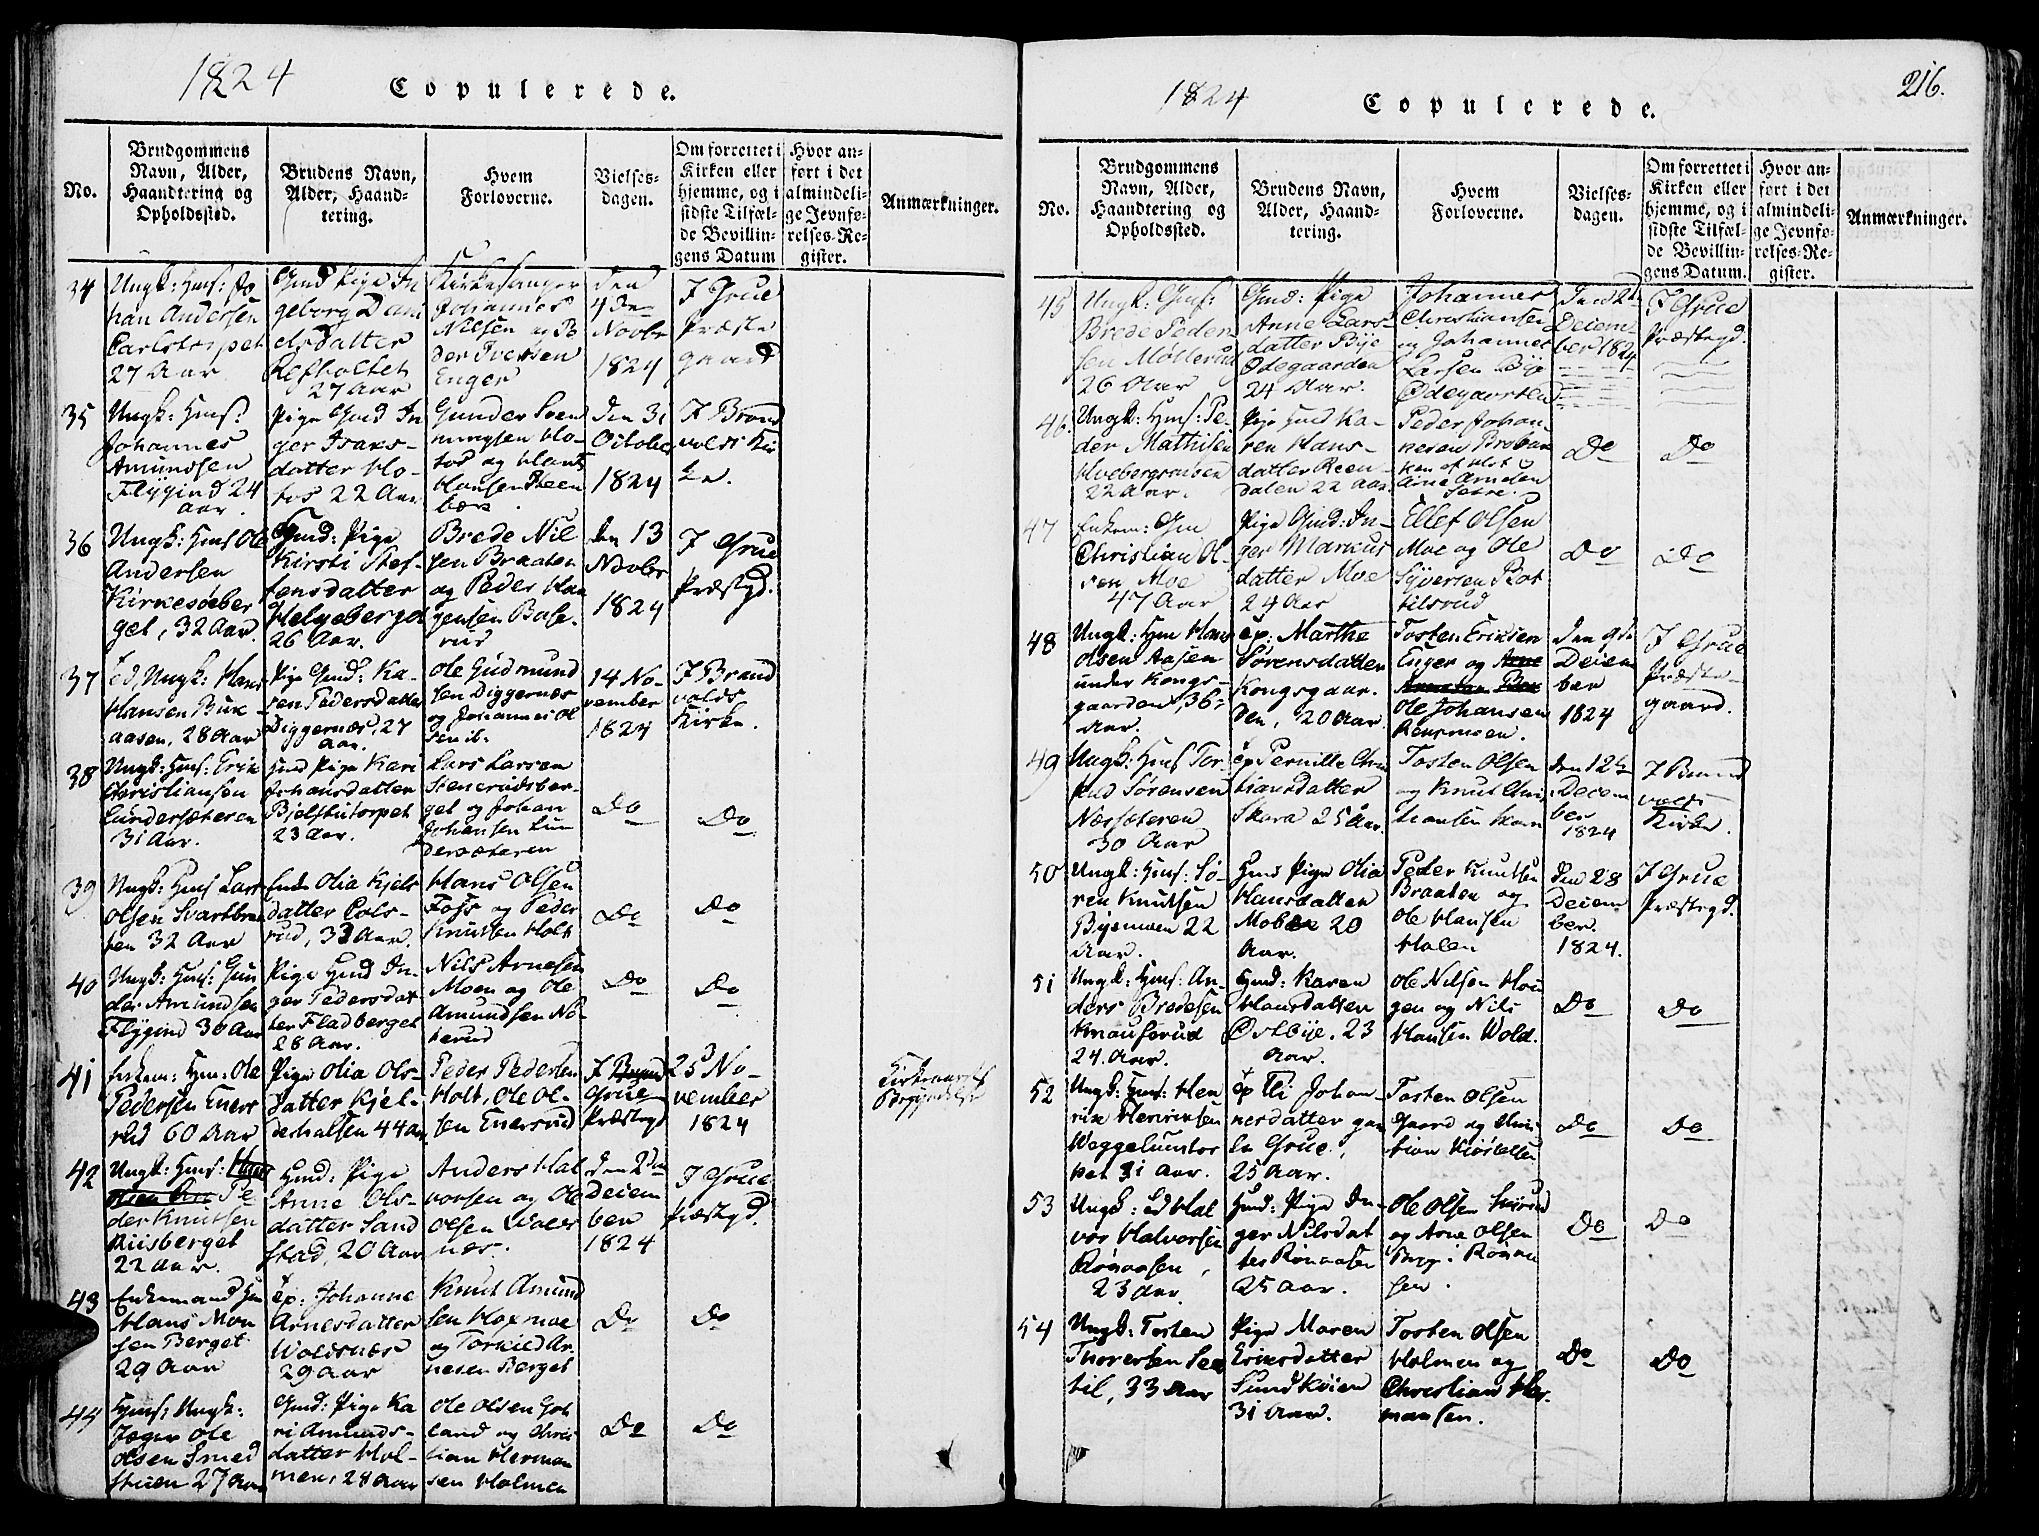 1824
Copulerede.
No.
Brudgommens
Navn, Alder,
Haandtering og
Opholdssted.
Brudens Navn,
Alder, Haand-
tering.
Hvem
Forloverne.
Vielses-
dagen.
Om forrettet i
Kirken eller
hjemme, og i
sidste Tilfæl-
de Bevillin-
gens Datum
Hvor an-
ført i det
almindeli-
ge Jevnfø-
relses-Re-
gister.
Anmærkninger.
34
Ungk: Hmf: Jo
han Andersen
Carlstorpet
27 Aar
Gmd Pige In
geborg Dani
elsdatter
Refholtet
27 Aar
Kirkesanger
Johannes
Nielsen og Pe
der Iversen
Enger
den
4de
Novbr
1824
I Grue
Præste
gaard
35
Ungk: Hmf:
Johannes
Amundsen
Flygind 24
Aar.
Pige Gmd In
ger Frans-
datter Ho-
tos 22 Aar.
Gunder Sven
ningsen Ho-
tos og Hans
Hansen Steen
bæk.
den 31
October
1824
I Brand
volds Kir
ke.
36
Ungk: Hmf Ole
Andersen
Kirkesøeber
get, 32 Aar.
Gmd: Pige
Kirsti Stef-
fensdatter
Helgeberget
26 Aar.
Brede Nil
sen Braaten
og Peder Haa
gensen Base-
rud
den 13
Novbr
1824
I Grue
Præstgd.
37
Ed, Ungk: Hans
Hansen Bux-
aasen, 28 Aar
Pige Gmd: Ka-
ren Pedersdatter
Diggernæs, 27
Aar.
Ole Gudmund
sen Diggernæs
og Johannes Ol
sen ib.
14 No-
vember
1824
I Brand
volds
Kirke.
38
Ungk: Hmf: Erik
Christiansen
Lundersæteren
31 Aar.
Gmd Pige Kari
Johansdatter
Bjelstutorpet
23 Aar.
Lars Larsen
Stenerudsber-
get og Johan
Johansen Lun
dersæteren
Do
Do
39
Ungk: Hmf Lars
Olsen Svartbraa
ten 32 Aar
Enke Olia Kjels
datter Cols-
rud, 33 Aar.
Hans Olsen
Foss og Peder
Knutsen Holt
Do
Do
40
Ungk: Hmf: Gun
der Amundsen
Flygind 30 Aar
Pige Gmd In-
ger Pedersdat
ter Fladberget
28 Aar.
Nils Arnesen
Moen og Ole
Amundsen No-
kerud
Do
Do
41
Enkem: Hjm: Ole
Pedersen Eners
rud 60 Aar
Pige Olia Ols-
datter Kjel-
derhalsen 44 Aar
Peder Pedersen
Holt, Ole Ol-
sen Enersrud
I
Grue
Præstegd
25 No-
vember
1824
42
Ungk: Hmf:
Pe-
der Knutsen
Riisberget
22 Aar.
Gmd: Pige
Anne Ols-
datter Sand
stad, 20 Aar
Anders Hal
vorsen og Ole
Olsen Wolds
næs.
den 2den
Decem
ber
1824
I Grue
Præstgd.
43
Enkemand Gm
Hans Mon
sen Berget
29 Aar
Ep: Johanne
Arnesdatter
Woldsnæs
29 Aar
Knut Amund
sen Hoxmoe
og Torkild Ar
nesen Berget
Do
Do
44
Hmf: Ungk:
Jæger Ole
Olsen Smed
stuen 27 Aar
Gmd: Pige Ka
ri Amunds-
datter Hol-
men, 28 Aar
Ole Olsen Got
land og Chris
tian Herman
sen Holmen
Do
Do
1824
Copulerede.
216.
No.
Brudgommens
Navn, Alder,
Haandtering og
Opholdssted.
Brudens Navn,
Alder, Haand-
tering.
Hvem
Forloverne.
Vielses-
dagen.
Om forrettet i
Kirken eller
hjemme, og i
sidste Tilfæl-
de Bevillin-
gens Datum.
Hvor an-
ført i det
almindeli-
ge Jevnfø-
relses-Re-
gister.
Anmærkninger.
45
Ungk: Gmf:
Brede Peder-
sen Møllerud
26 Aar
Gmd: Pige
Anne Lars-
datter Bye
Ødegaarden
24 Aar.
Johannes
Christiansen
og Johannes
Larsen Bye
Ødegaarden
den 2d
Decem
ber 1824
I Grue
Præstegd.
46.
Ungk: Hmf: Pe-
der Mathisen
Hvebergsruben
22 Aar.
Pige Gmd Ka-
ren Hans-
datter Reen-
dalen 22 Aar.
Peder Johan-
nesen Braban
ken af Hof
Arne Arnesen
Sætre.
Do
Do
47
Enkem: Gm
Christian Ol-
sen Moe
47 Aar
Pige Gmd: In-
ger Markus
datter Moe
24 Aar
Ellef Olsen
Moe og Ole
Syversen Rot
tilsrud
Do
Do
48
Ungk: Hjm Hans
Olsen Aasen
under Kongs-
gaarden, 36-
Aar.
Ep: Marthe
Sørensdatter
Kongsgaar.
den, 20 Aar
Tosten Eriksen
Enger og
Ole Johansen
den 9de
Decem
ber
1824
I Grue
Præste-
gaard.
49
Ungk: Hmf Tor
kild Sørensen
Næssæteren
30 Aar
Ep Pernille Chris
tiansdatter
Skara 25 Aar.
Tosten Olsen
og Knut Chris
tiansen Skara
den 12te
Decem
ber
1824
I Brand
volds
Kirke.
50
Ungk: Hmf: Sø-
ren Knutsen
Bysmoen 22
Aar.
Gmd Pige Olia
Hansdatter
Mobæk 20
Aar.
Peder Knutsen
Braaten og
Ole Hansen
Holen
den 28
Decem
ber.
1824.
I Grue
Præstegd.
51
Ungk: Hmf: An-
ders Bredesen
Knauserud
24. Aar.
Gmd: Karen
Hansdatter
Østbye. 23
Aar.
Ole Nilsen Hou
gen og Nils
Hansen Wold.
Do
Do
52
Ungk: Hmf: Hen
rik Henriksen
Weggelumtor
pet 31 Aar.
Ep Eli Johan-
nesdatter gam
le Grue,
25 Aar.
Tosten Olsen
Gaard og Chris
tian Kjøstelsen
Do
Do
53
Ungk: Ed Hal
vor Halvorsen
Rønaasen,
23 Aar.
Gmd: Pige In-
ger Nilsdat
ter Rønaasen
25 Aar.
Ole Olsen
og Arne Olsen
Do
Do
54
Ungk: Tosten
Thoresen Sæ
til, 33 Aar
Pige Maren
Eriksdatter
Sundkøien
31 Aar.
Tosten Olsen
Holmen og
Christian Her-
mansen.
Do
Do